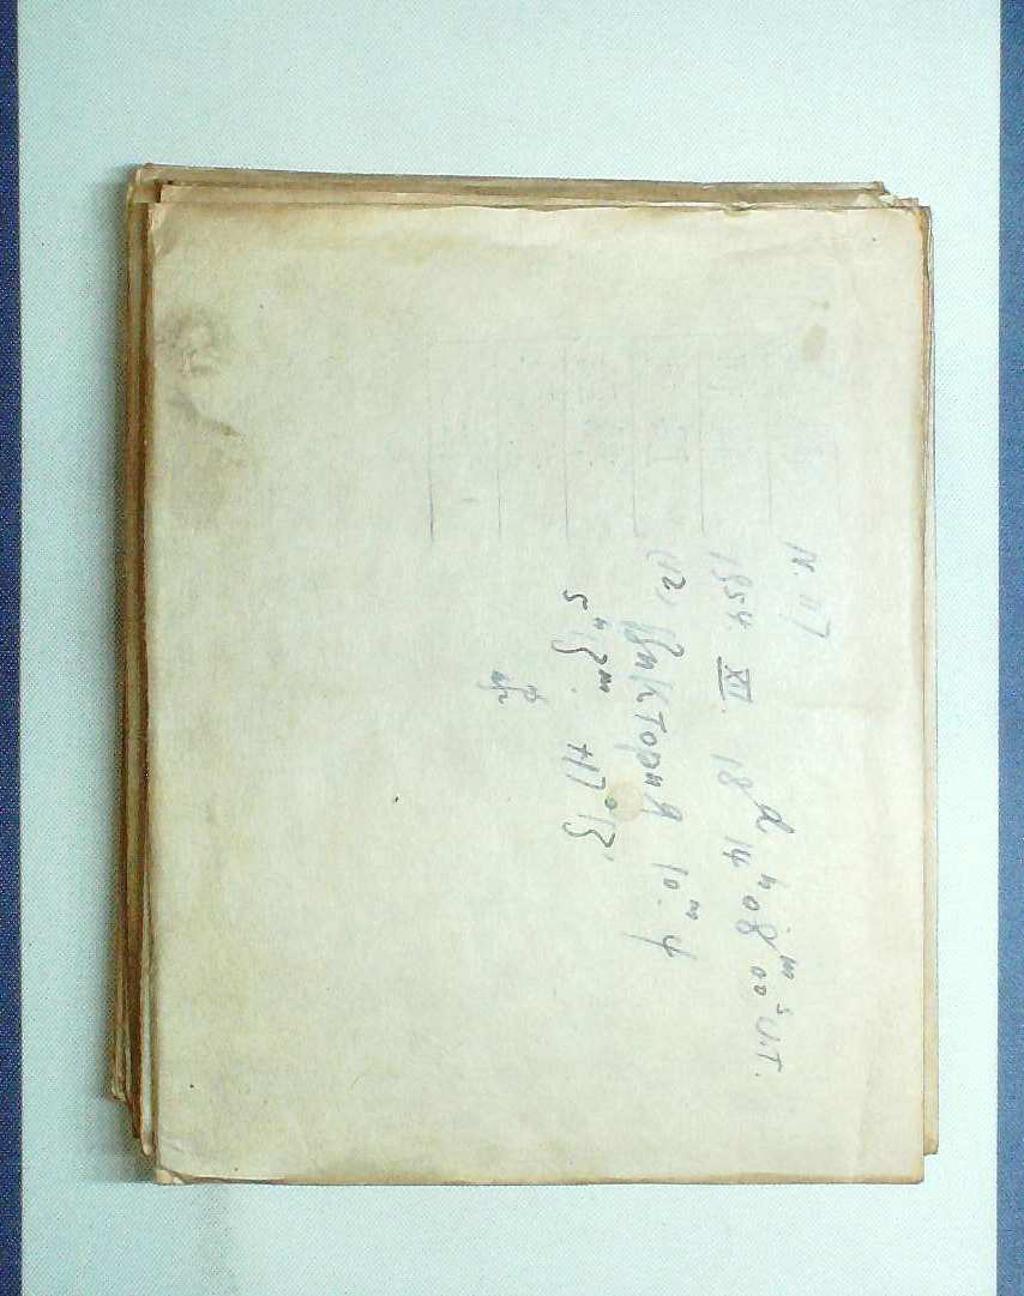 N. 117
1954 XI. 18d 14h 08m 00s U.T.
(12) Виктория 10m. 4
5h 13m. +17° 13'